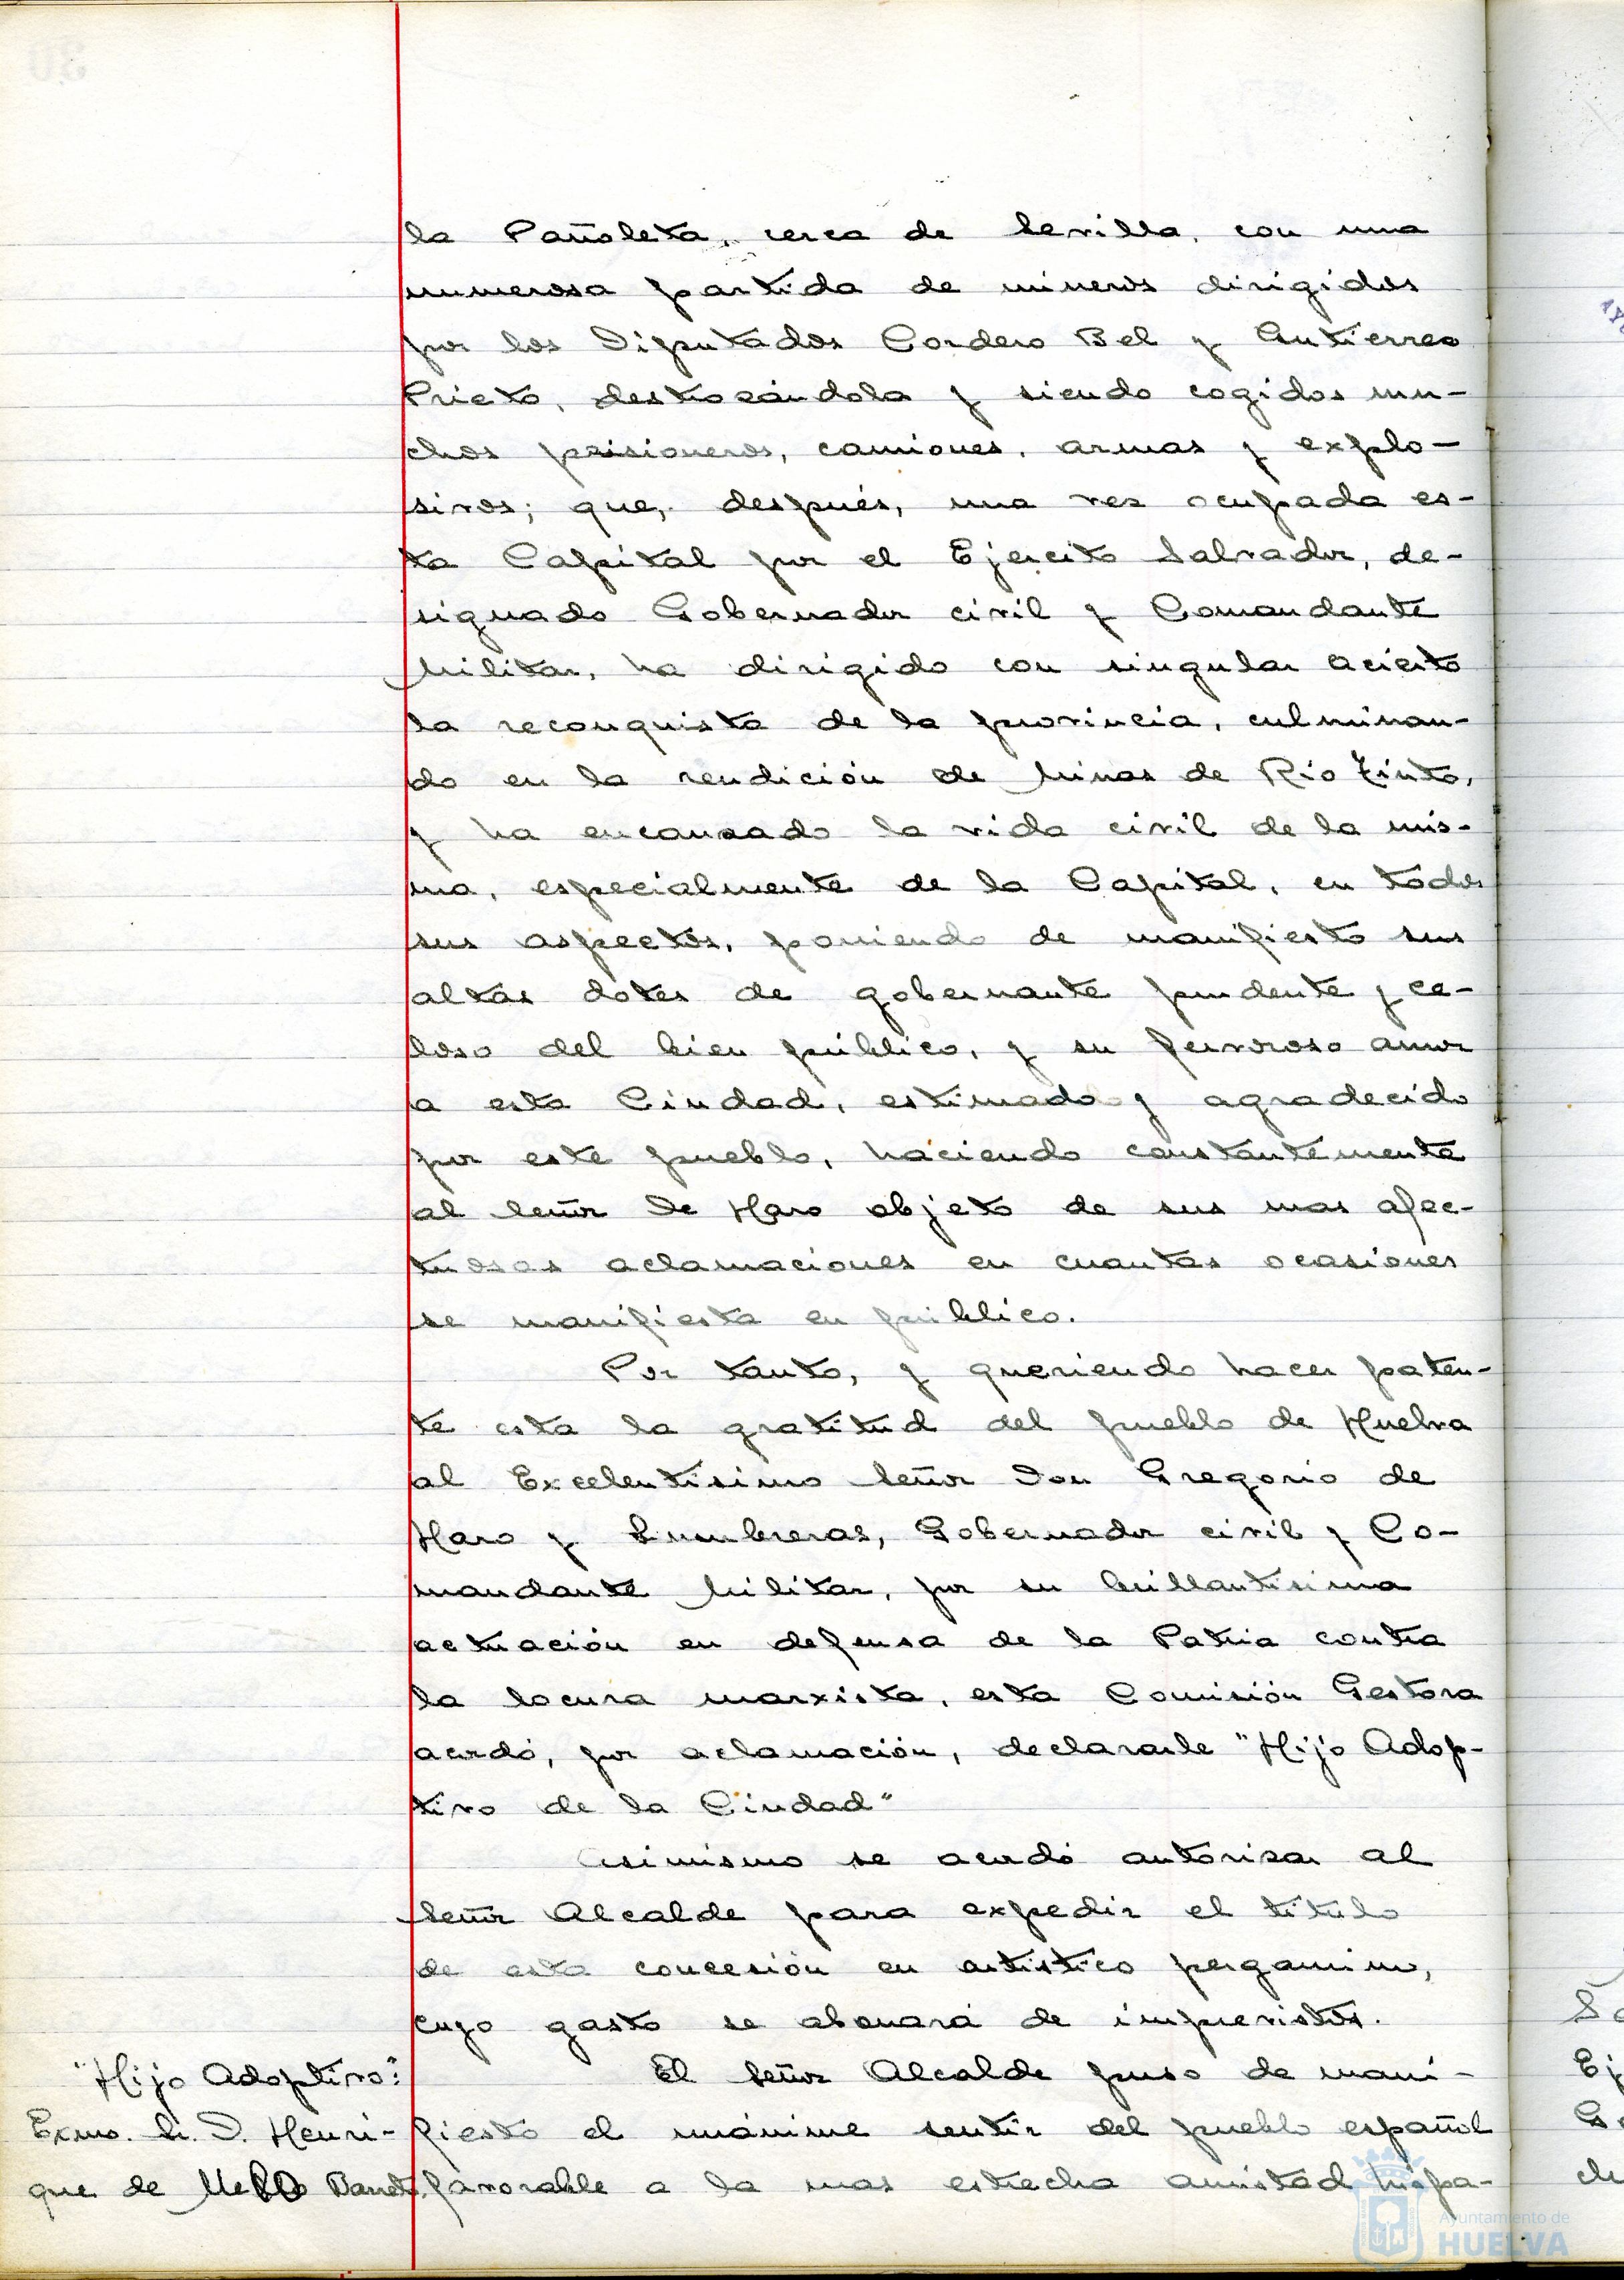 la Pañoleta, cerca de Sevilla, con una
numerosa partida de mineros dirigidos
por los Diputados Cordero Bel y Gutierrez
Prieto, destrozándola y siendo cogidos mu-
chos prisioneros, camiones, armas y explo-
sivos; que, después, una vez ocupada es-
ta Capital por el Ejercito Salvador, de-
signado Gobernador civil y Comandante
Militar, ha dirigido con singular acierto
la reconquista de la provincia, culminan-
do en la rendición de Minas de Rio Tinto,
y ha encauzado la vida civil de la mis-
ma, especialmente de la Capital, en todos
sus aspectos, poniendo de manifiesto sus
altas dotes de gobernante prudente y ce-
loso del bien público, y su fervoroso amor
a esta Ciudad, estimado y agradecido
por este pueblo, haciendo constantemente
al Señor De Haro objeto de sus mas afec-
tuosas aclamaciones en cuantas ocasiones
se manifiesta en público.
Por tanto, y queriendo hacer paten-
te esta la gratitud del pueblo de Huelva
al Excelentísimo Señor Don Gregorio de
Haro y Lumbreras, Gobernador civil y Co-
mandante Militar, por su brillantísima
actuación en defensa de la Patria contra
la locura marxista, esta Comisión Gestora
acordó, por aclamación, declararle "Hijo Adop-
tivo de la Ciudad"
Asimismo se acordó autorizar al
Señor Alcalde para expedir el título
de esta concesión en artístico pergamino,
cuyo gasto se abonará de imprevistos.
"Hijo Adoptivo:"
Exmo. Sr. D. Henri-
que de Mello Barreto.
El Señor Alcalde puso de mani-
fiesto el unánime sentir del pueblo español
favorable a la mas estrecha amistad hispa-
Ayuntamiento de
HUELVA